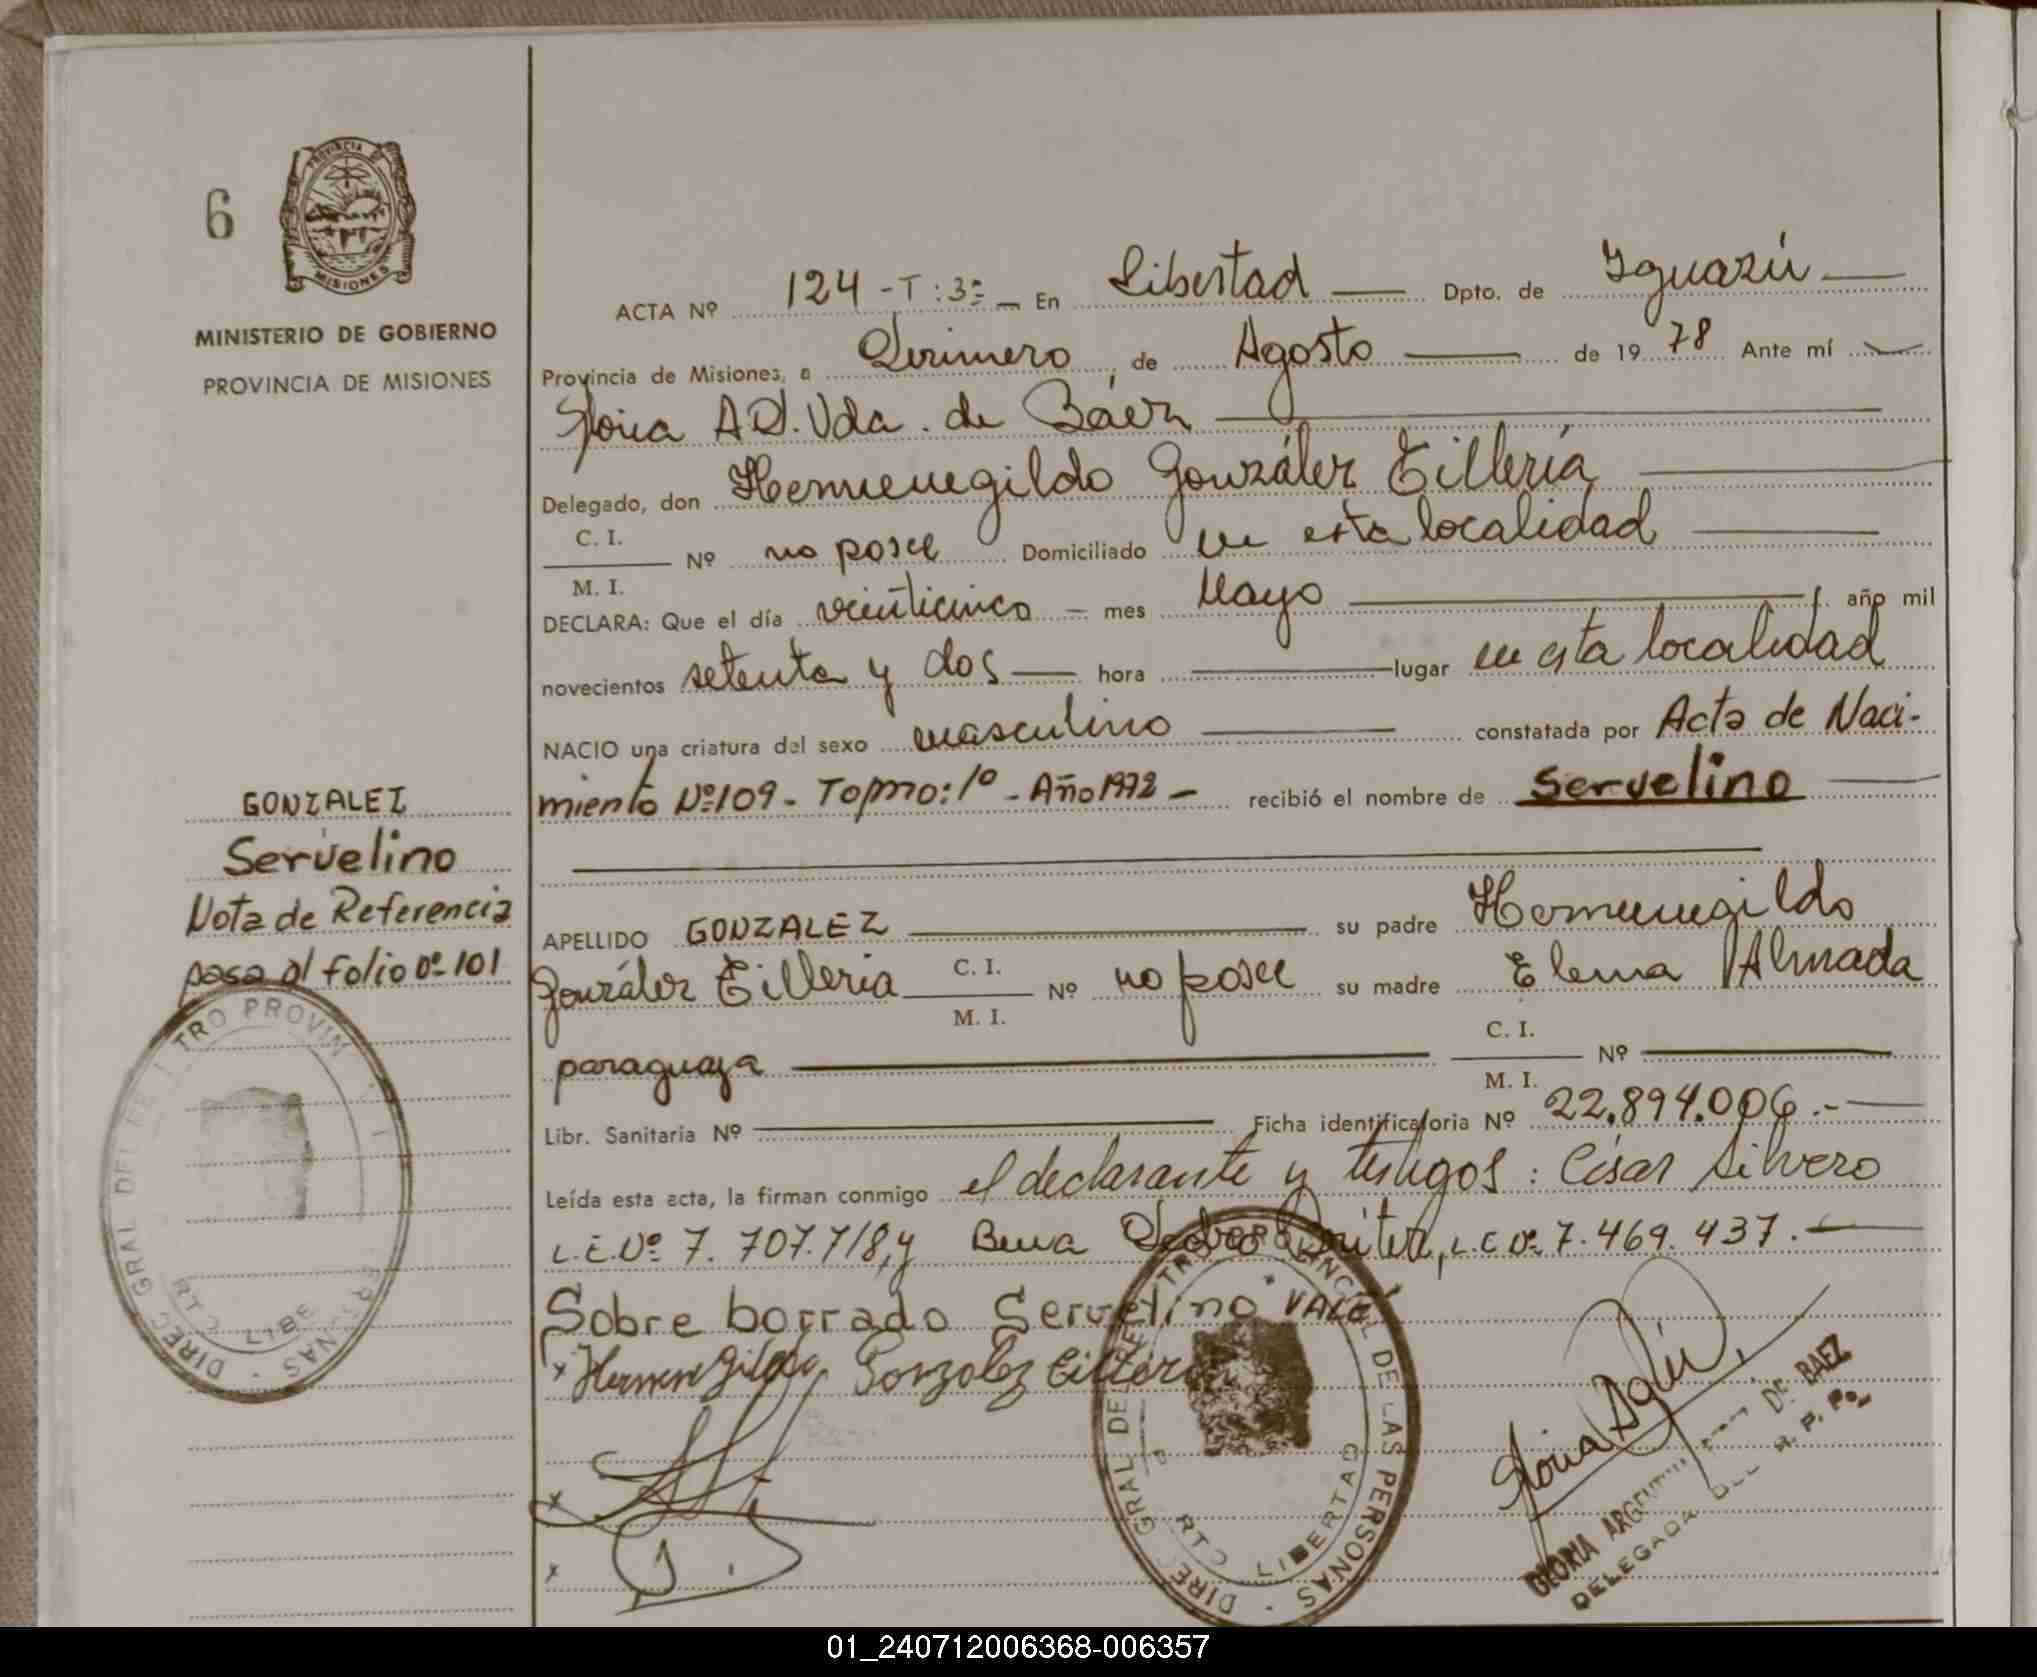 6
PROVINCIA DE
MISIONES
MINISTERIO DE GOBIERNO
PROVINCIA DE MISIONES
ACTA Nº 124 - T: 3º - En Libertad Dpto. de Iguazú
Provincia de Misiones, a Primero, de Agosto de 1978 Ante mí
Gloria A D. Vda. de Báez
Delegado, don Hermenegildo González Tillería
C. I.
M. I.
Nº no posee Domiciliado en esta localidad
DECLARA: Que el día veinticinco - mes Mayo año mil
novecientos setenta y dos hora lugar en esta localidad
NACIO una criatura del sexo masculino constatada por Acta de Naci-
miento Nº 109 - Tomo: 1º - Año 1972 - recibió el nombre de Servelino
GONZALEZ
Servelino
Nota de Referencia
pasa al folio Nº 101
APELLIDO GONZALEZ su padre Hermenegildo
González Tilleria C. I.
M. I. Nº no posee su madre Elena Almada
paraguaya C. I.
M. I. Nº
Libr. Sanitaria Nº Ficha identificatoria Nº 22.894.006.-
Leída esta acta, la firman conmigo el declarante y testigos: César Silvero
L.E. Nº 7.707.718, y Pedro L.E Nº 7.469.437.-
Sobre borrado Servelino VALE
x Hermenegildo Gonzalez Tilleria
x
x
DIREC GRAL DEL TRO PROVIN ERSONAS
LIBE
DIREC GRAL DE PROVINCIAL DE LAS PERSONAS
LIBERTAD
GLORIA DE BAEZ
DELEGADA R. P. P.
01_240712006368-006357